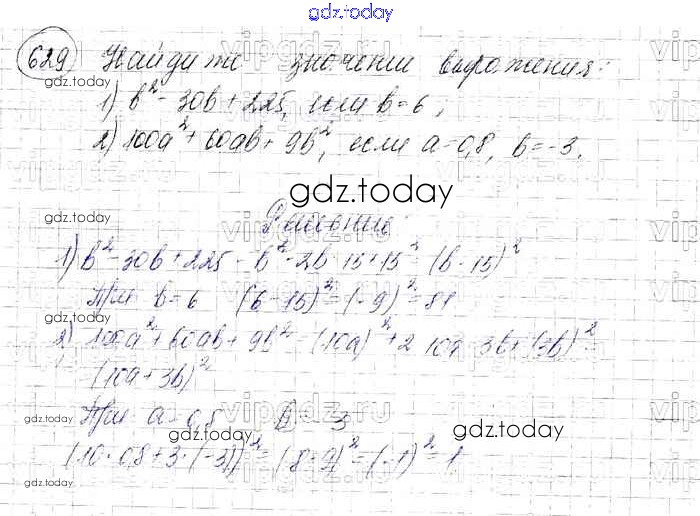 gdz.today
629 Найдите значение выражения:
1) b² - 30b + 225, если b = 6;
2) 100a² + 60ab + 9b², если a = 0,8, b = -3.
gdz.today
Решение:
1) b² - 30b + 225 = b² - 2b · 15 + 15² = (b - 15)²
При b = 6 (6 - 15)² = (-9)² = 81
gdz.today
2) 100a² + 60ab + 9b² = (10a)² + 2 · 10a · 3b + (3b)² =
(10a + 3b)²
При a = 0,8 b = -3
gdz.today gdz.today gdz.today
(10 · 0,8 + 3 · (-3))² = (8 - 9)² = (-1)² = 1
gdz.today